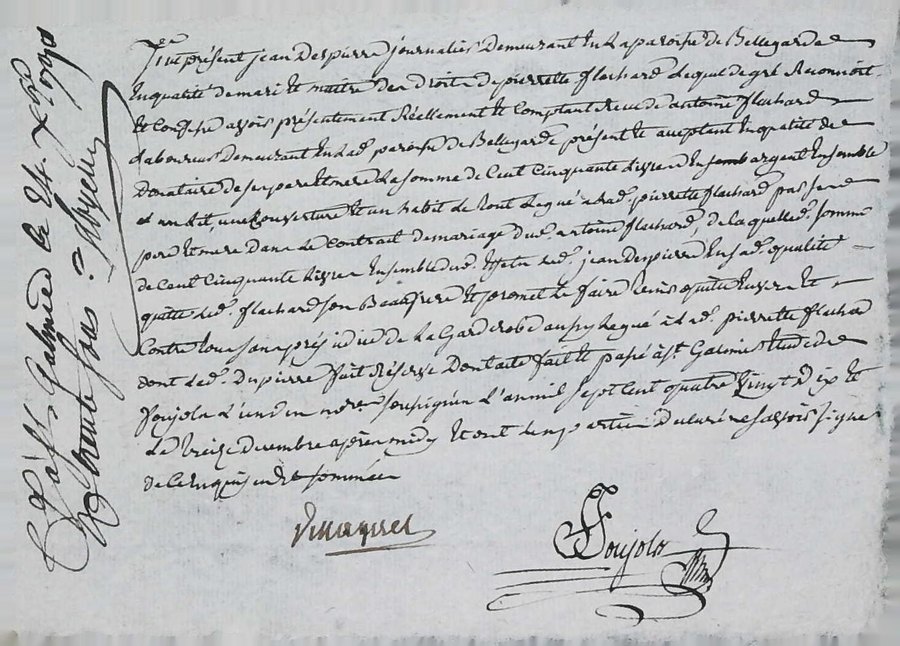 fut présent jean Despierre journalier Demeurant En la paroisse de Bellegarde
En qualité de mari Et maitre des Droits de pierrette flachard Lequel de gré Reconnoit
Et Confesse avoir présentement Réellement Et Comptant Receu de antoine flachard
Laboureur Demeurant En lad. paroisse de Bellegarde présent Et aceptant En qualité de
Donataire de ses pere Et mere La somme de Cent Cinquante Livres En argent Ensemble
un Lit, une Couverture Et un habit Le tout Legué a lad. pierrette flachard par ses
pere Et mere dans Le Contrait de mariage dud. antoine flachard, de laquelle somme
de Cent Cinquante Livres Ensemble led. jean Despierre En sad. qualité
quitte led. flachard son Beaufrere Et promet Le faire tenir quitte Envers Et
Contre tous sans préjudice de La Garderobe aussy Legué à lad. pierrette flachard
dont led. Dupierre fait Réserve Dont acte fait Et passé à St. Galmier Etude de
Foujols L'un des nores. soussignés L'an mil sept Cent quatre Vingt Dix Et
Le treize décembre après midy Et ont Les parties déclaré ne savoir signer
de Ce Enquises Et sommées
Foujols
à St. Galmier le 24 Xbre 1790
trente sous